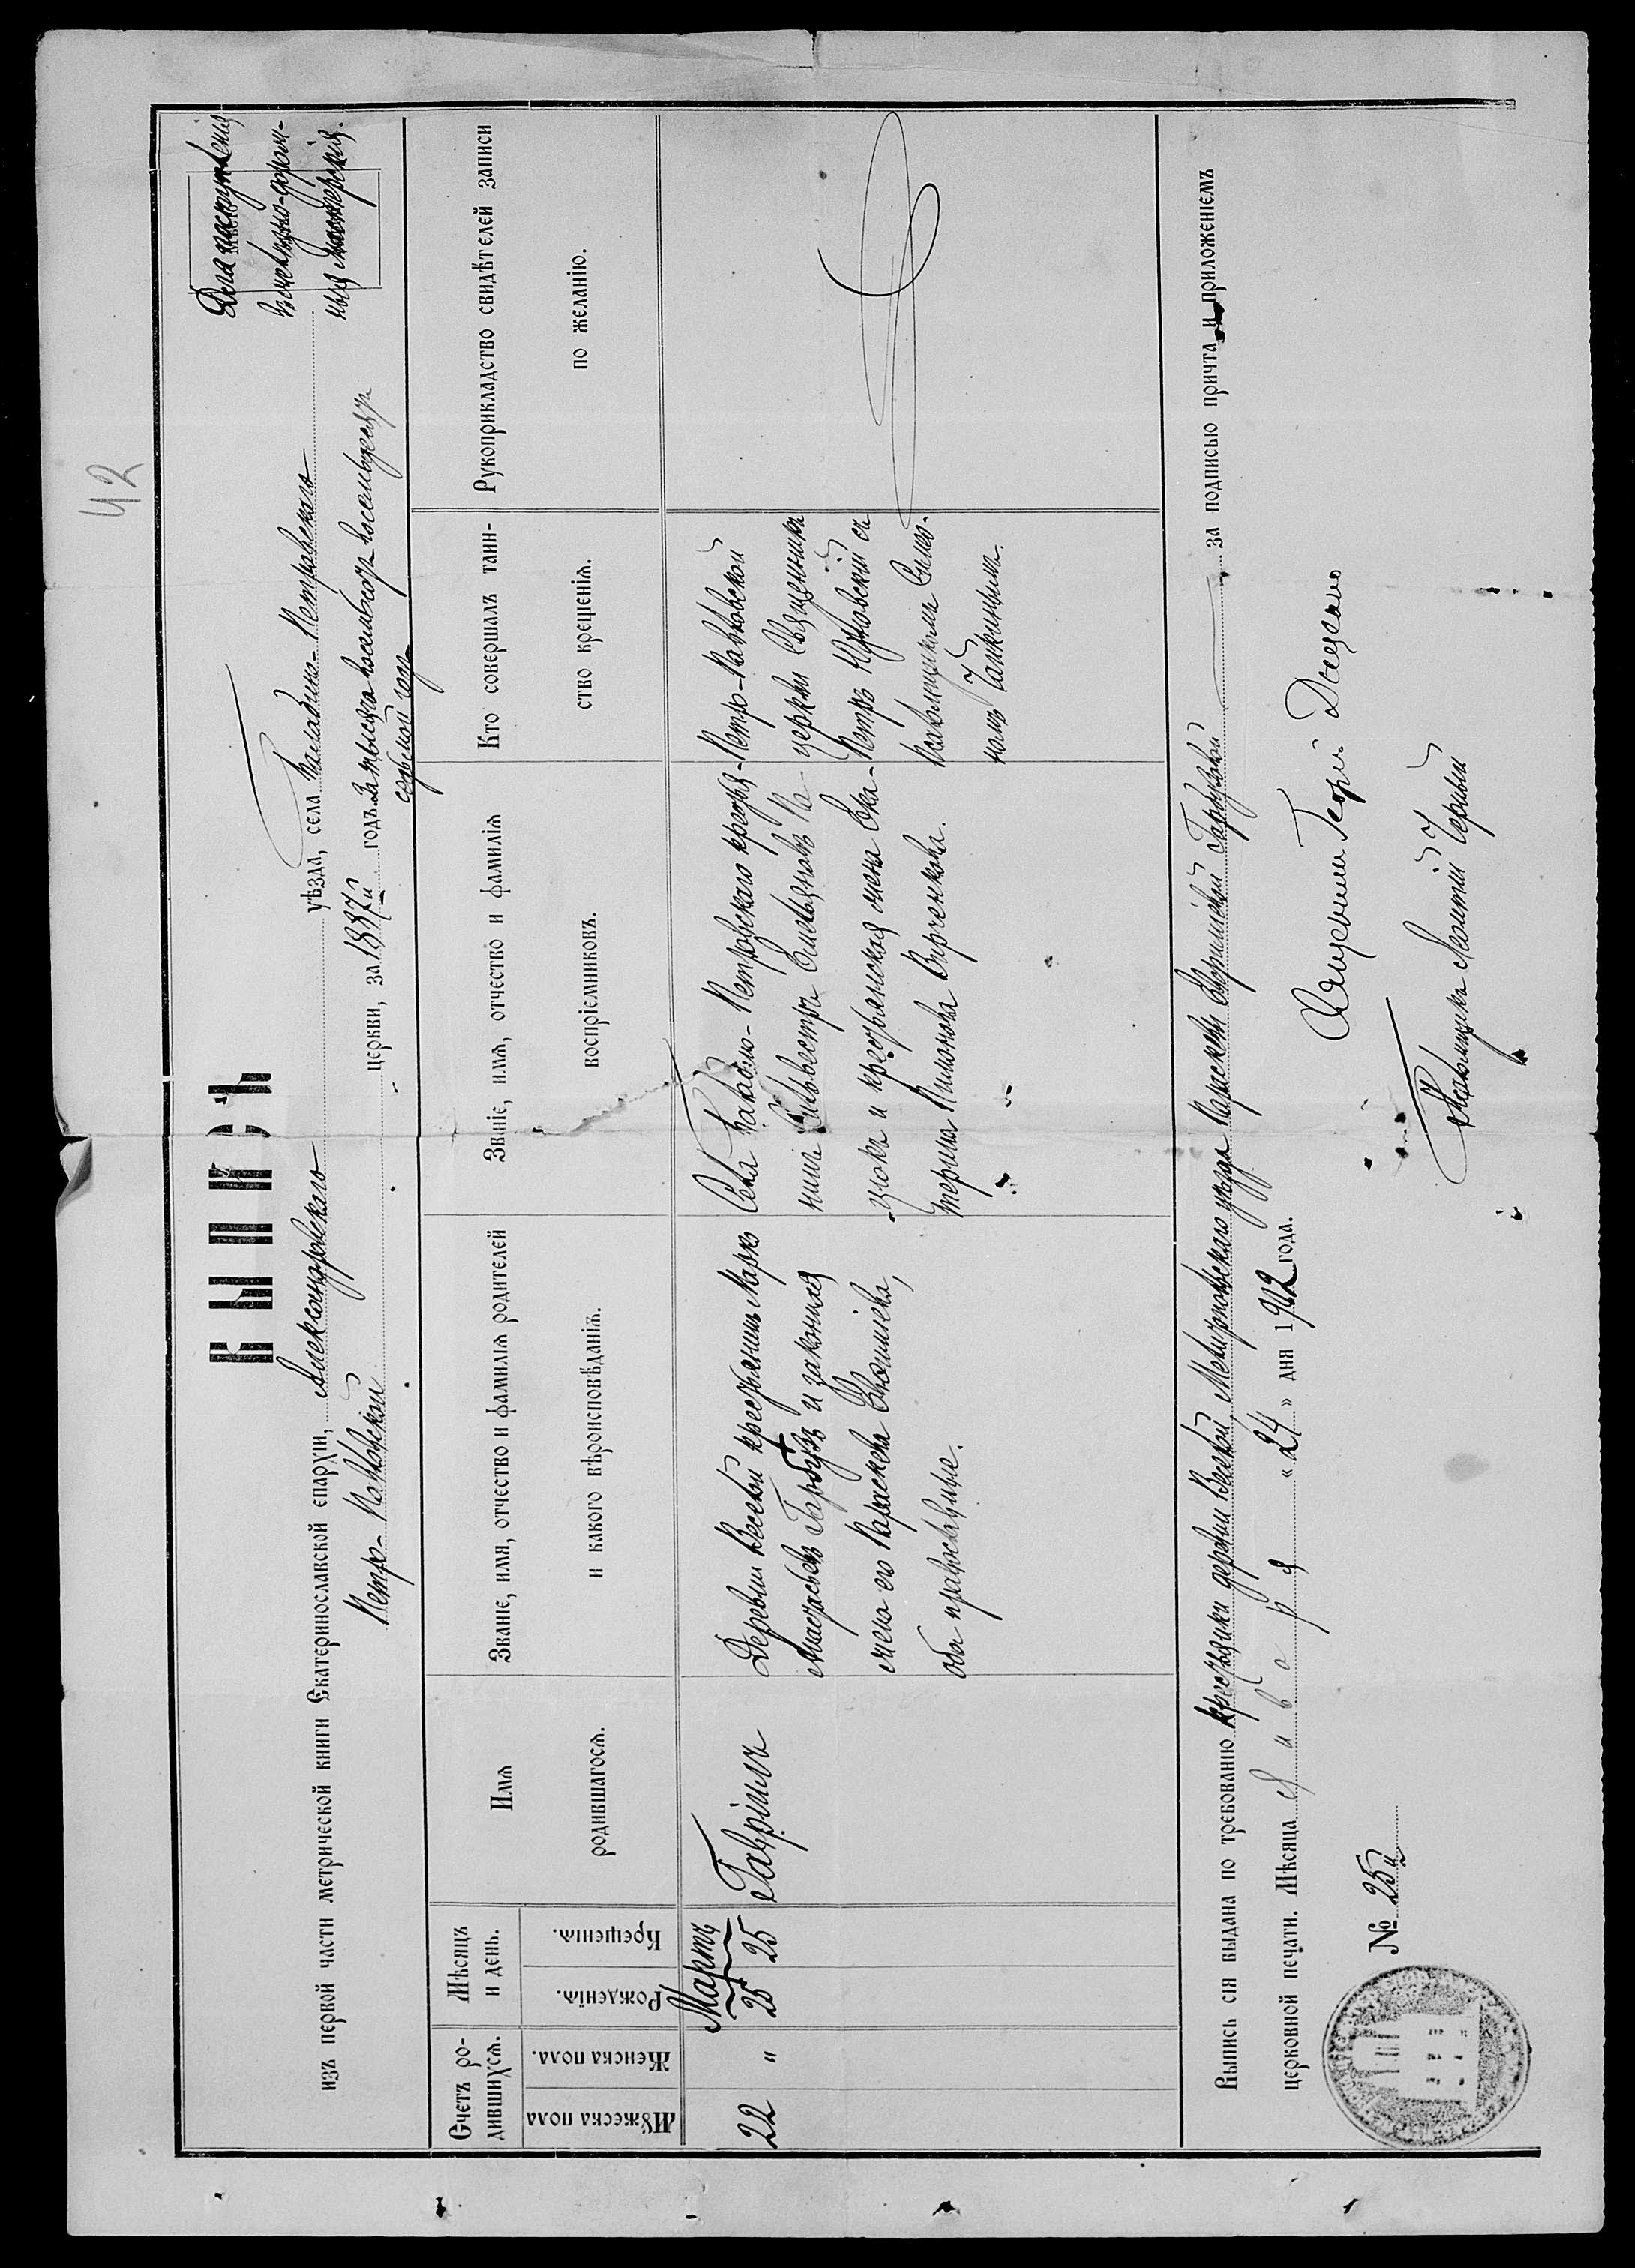 42
ВЫПИСЬ
Для поступленія
въ
мастерскія.
изъ первой части метрической книги Екатеринославской епархіи, Александровскаго уѣзда, села Павло-Петровскаго
Петро-Павловской церкви, за 1887й годъ. За тысяча восемьсотъ восемьдесятъ
седьмой годъ
Счетъ ро-
дившихся.
Мужеска пола
Женска пола.
Мѣсяцъ
и день.
Рожденія.
Крещенія.
Имя
родившагося.
Званіе, имя, отчество и фамилія родителей
и какого вѣроисповѣданія.
Званіе, имя, отчество и фамилія
воспріемниковъ.
Кто совершалъ таин-
ство крещенія.
Рукоприкладство свидѣтелей записи
по желанію.
22
"
Мартъ
25
25
Гавріилъ
Деревни Веселой крестьянинъ Маркъ
Гарбузъ и законная
жена его Параскева
оба православные.
Села Павло-Петровскаго крестья-
нинъ Сильвестръ Емельяновъ Па-
цюкъ и крестьянская жена Ека-
терина Пимонова Вирченкова.
Петро-Павловской
церкви Священникъ
Петръ съ
псаломщикомъ Симео-
номъ Чайкинымъ.
Выпись сія выдана по требованію крестьянки деревни Веселой, Мелитопольскаго уѣзда Параскевы Гарбузовой, за подписью причта и приложеніемъ
церковной печати. Мѣсяца Января «24» дня 1912 года.
№ 25й
Священникъ Георгій
Псаломщикъ Леонтій Черный